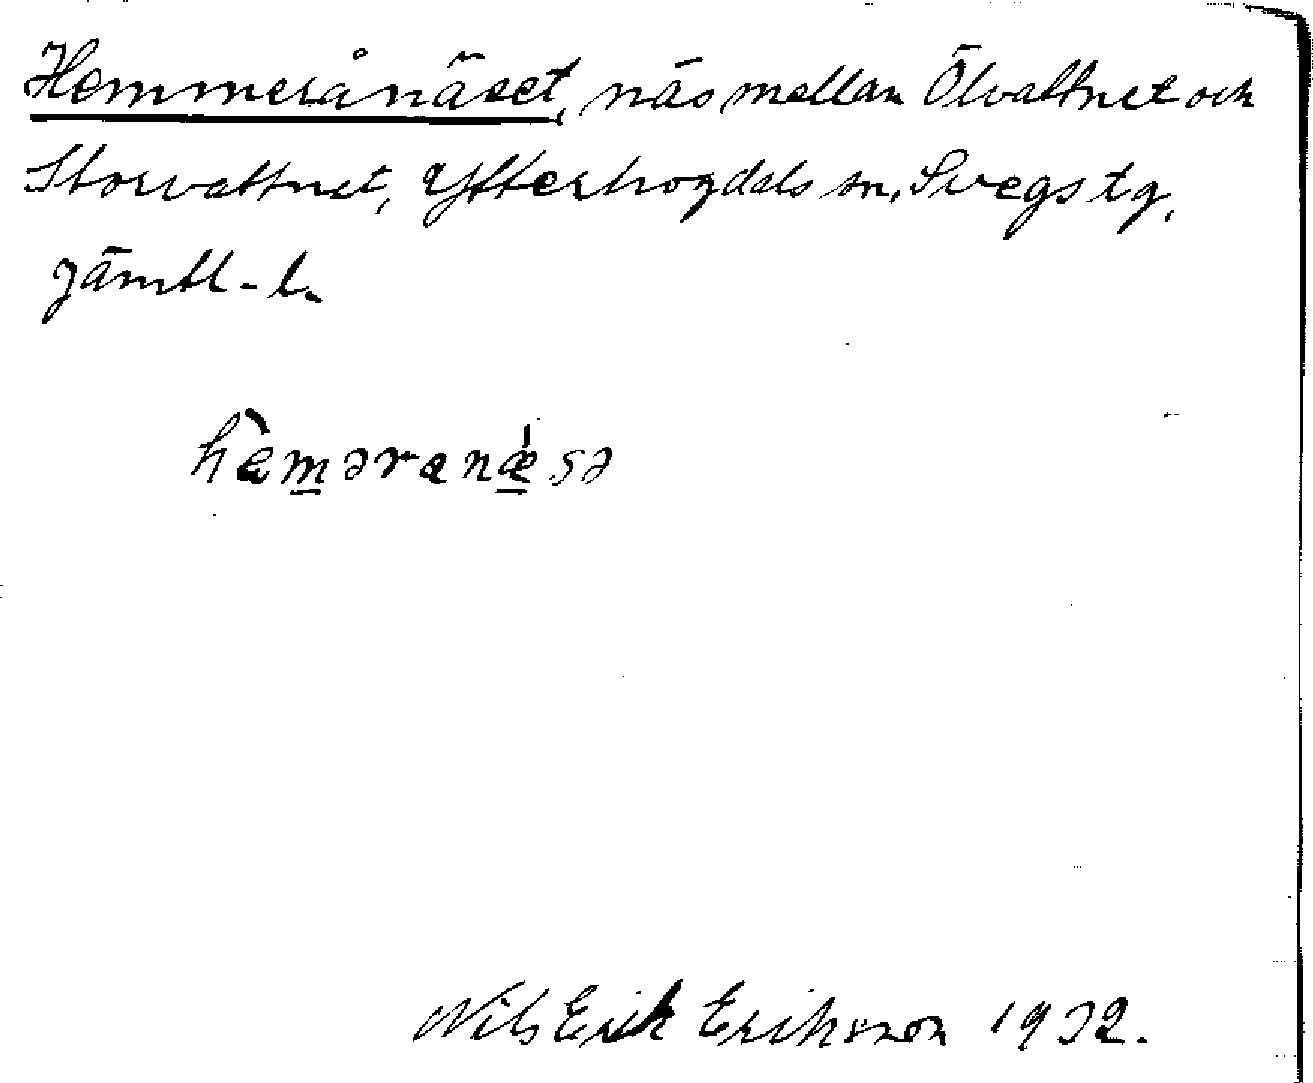 Hemmerånäset, näs mellan Ölvattnet och
Storvattnet, Ytterhogdals sn, Svegs tg,
Jämtl-l.
hὲmərɑnǽsə
Nils Erik Eriksson 1932.